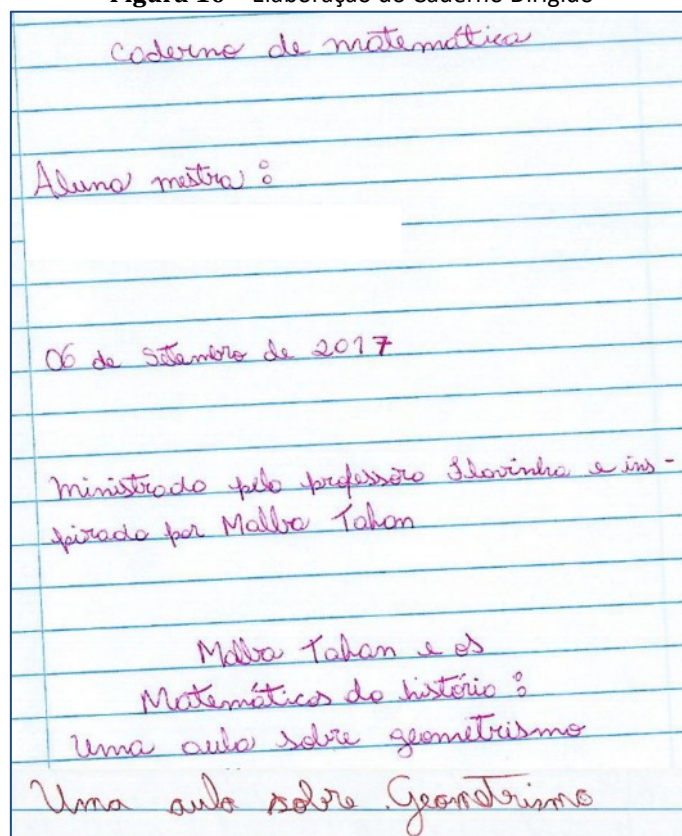 Figura 10 – Elaboração do Caderno Dirigido
Caderno de matemática
Aluna mestra :
06 de Setembro de 2017
Ministrado pela professora Flavinha e ins-
pirado por Malba Tahan
Malba Tahan e os
Matemáticos da história :
Uma aula sobre geometrismo
Uma aula sobre Geometrismo